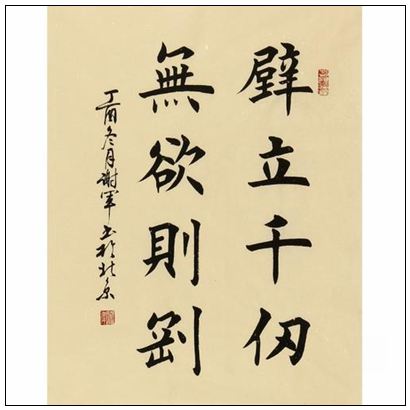 壁立千仞
無欲則剛
丁酉冬月謝軍书於北京